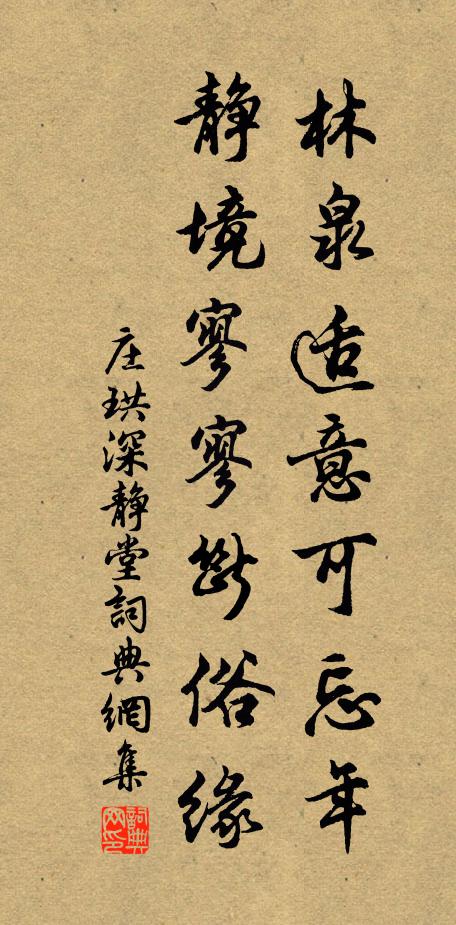 林泉适意可忘年
静境寥寥断俗缘
庄珙深静堂詞典網集
詞典
网印